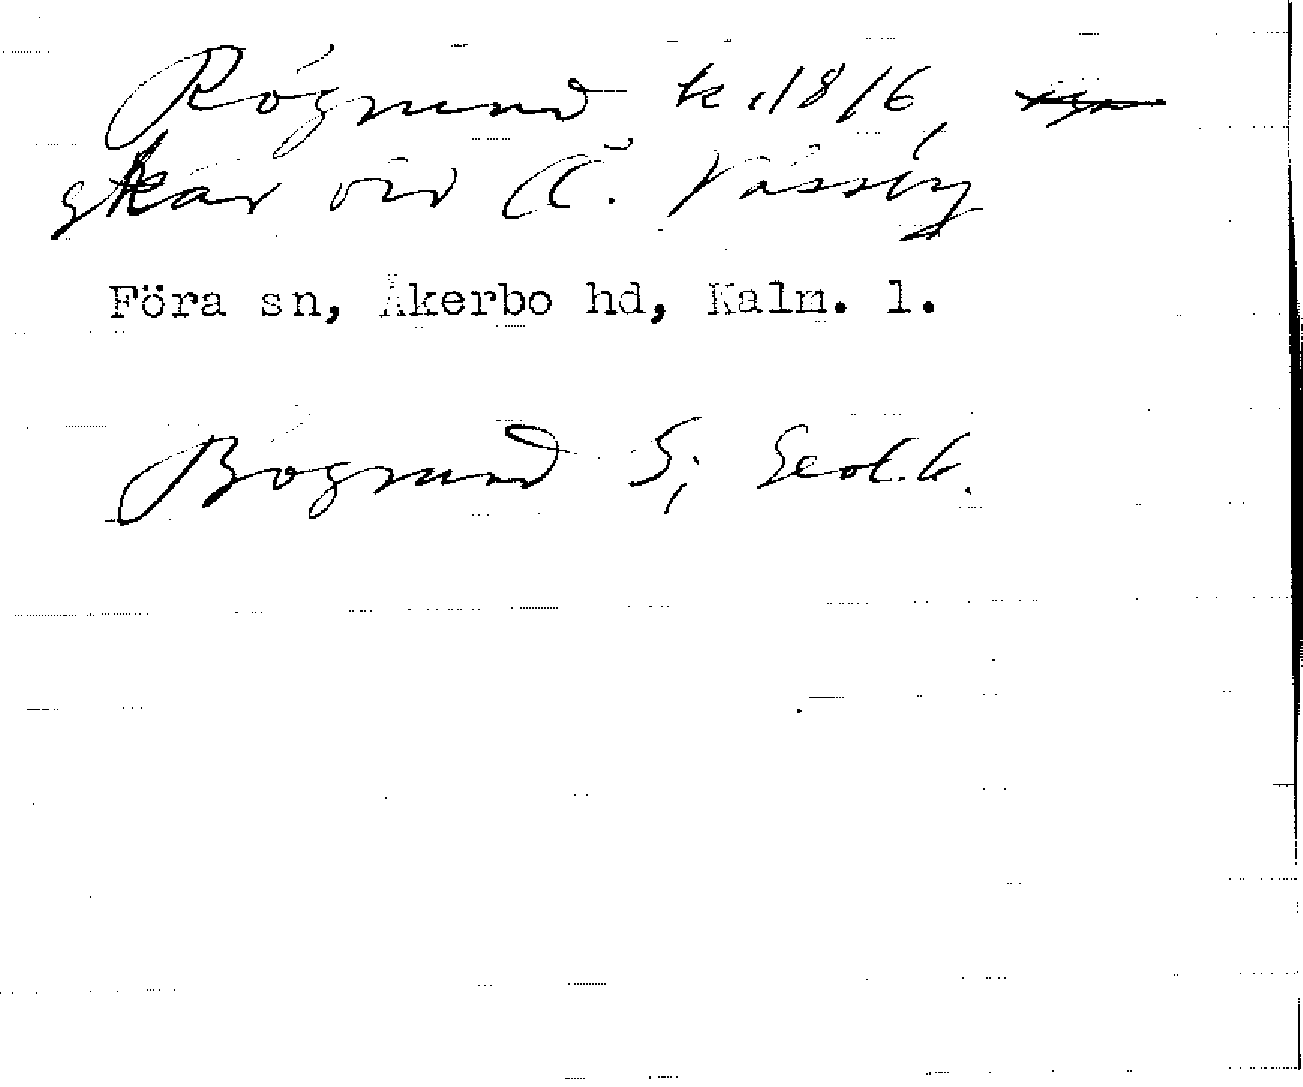 Rögrund k. 1816,
skär vid Ö. Vässby
Föra sn, Åkerbo hd, Kalm. l.
Bögrund S; Geol.b.